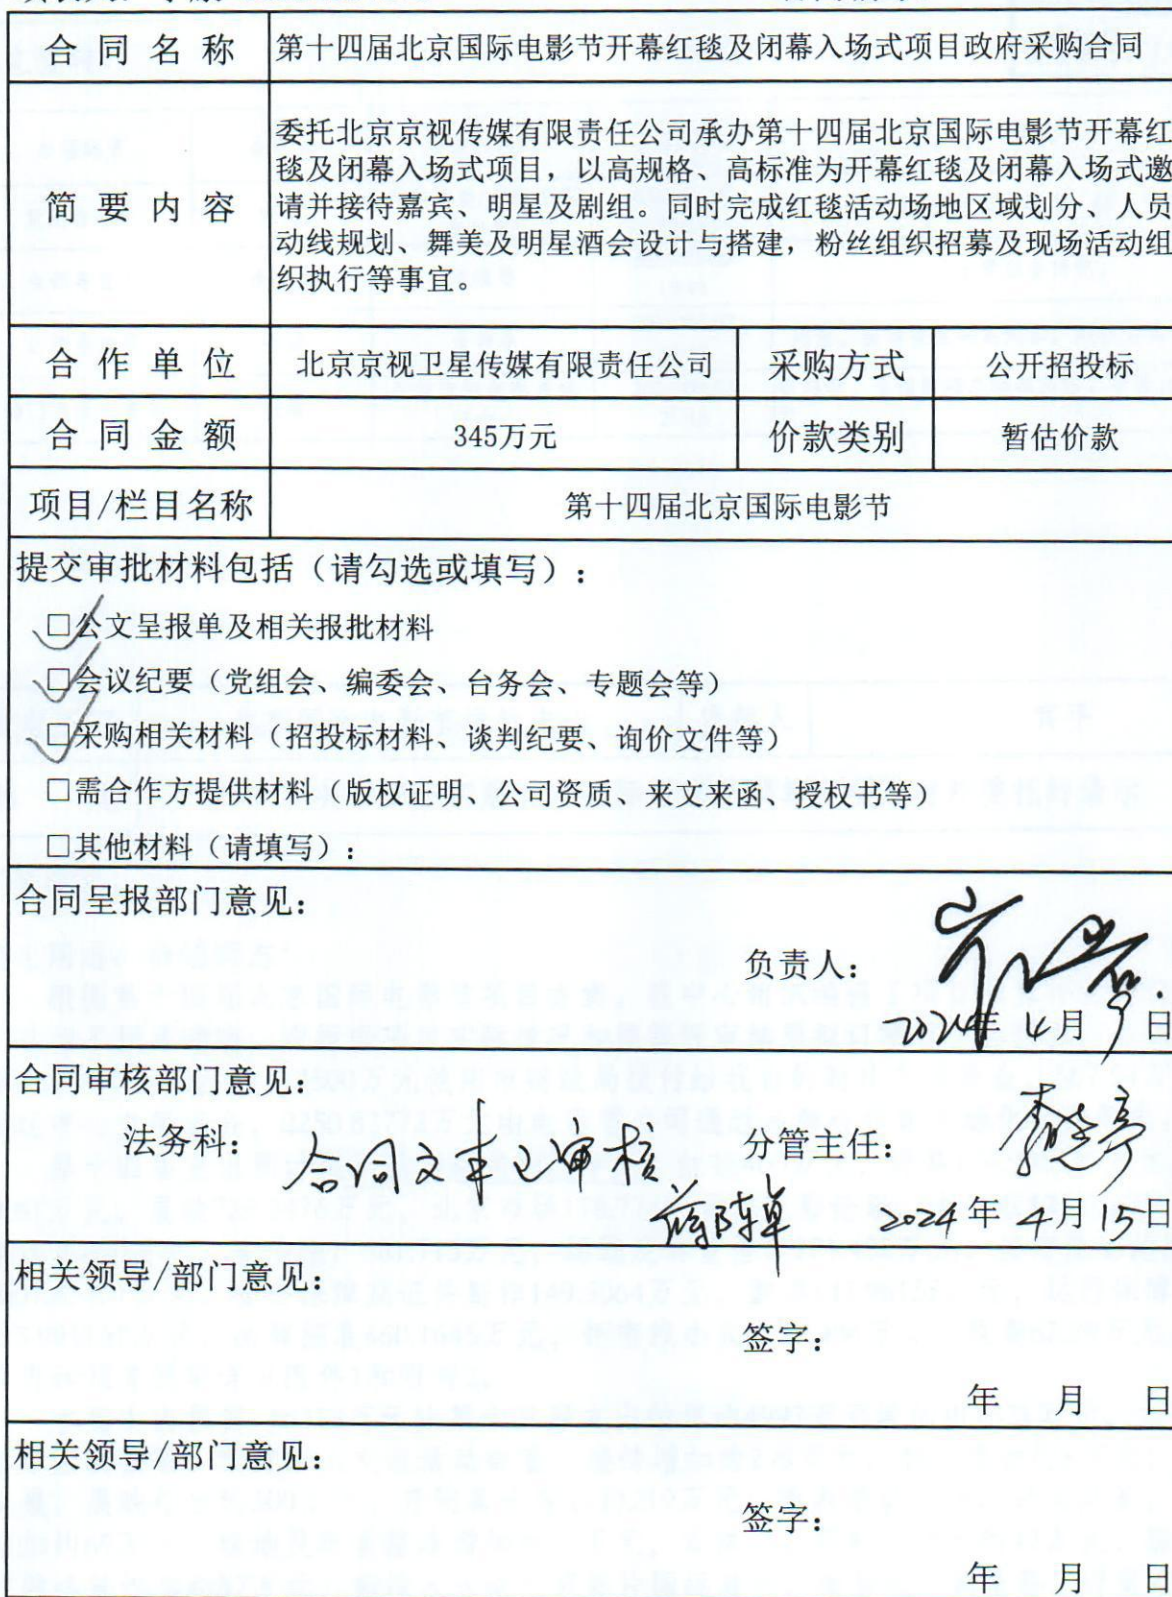 合同名称 第十四届北京国际电影节开幕红毯及闭幕入场式项目政府采购合同
委托北京京视传媒有限责任公司承办第十四届北京国际电影节开幕红
毯及闭幕入场式项目，以高规格、高标准为开幕红毯及闭幕入场式邀
简要内容 请并接待嘉宾、明星及剧组。同时完成红毯活动场地区域划分、人员
动线规划、舞美及明星酒会设计与搭建，粉丝组织招募及现场活动组
织执行等事宜。
合作单位 北京京视卫星传媒有限责任公司 采购方式 公开招投标
合同金额 345万元 价款类别 暂估价款
项目/栏目名称 第十四届北京国际电影节
提交审批材料包括（请勾选或填写）：
□公文呈报单及相关报批材料
□会议纪要（党组会、编委会、台务会、专题会等）
□采购相关材料（招投标材料、谈判纪要、询价文件等）
□需合作方提供材料（版权证明、公司资质、来文来函、授权书等）
□其他材料（请填写）：
合同呈报部门意见：
负责人：
2024年 4月 日
合同审核部门意见：
法务科： 合同文本已审核 分管主任：
2024年 4月 15日
相关领导/部门意见：
签字：
年 月 日
相关领导/部门意见：
签字：
年 月 日